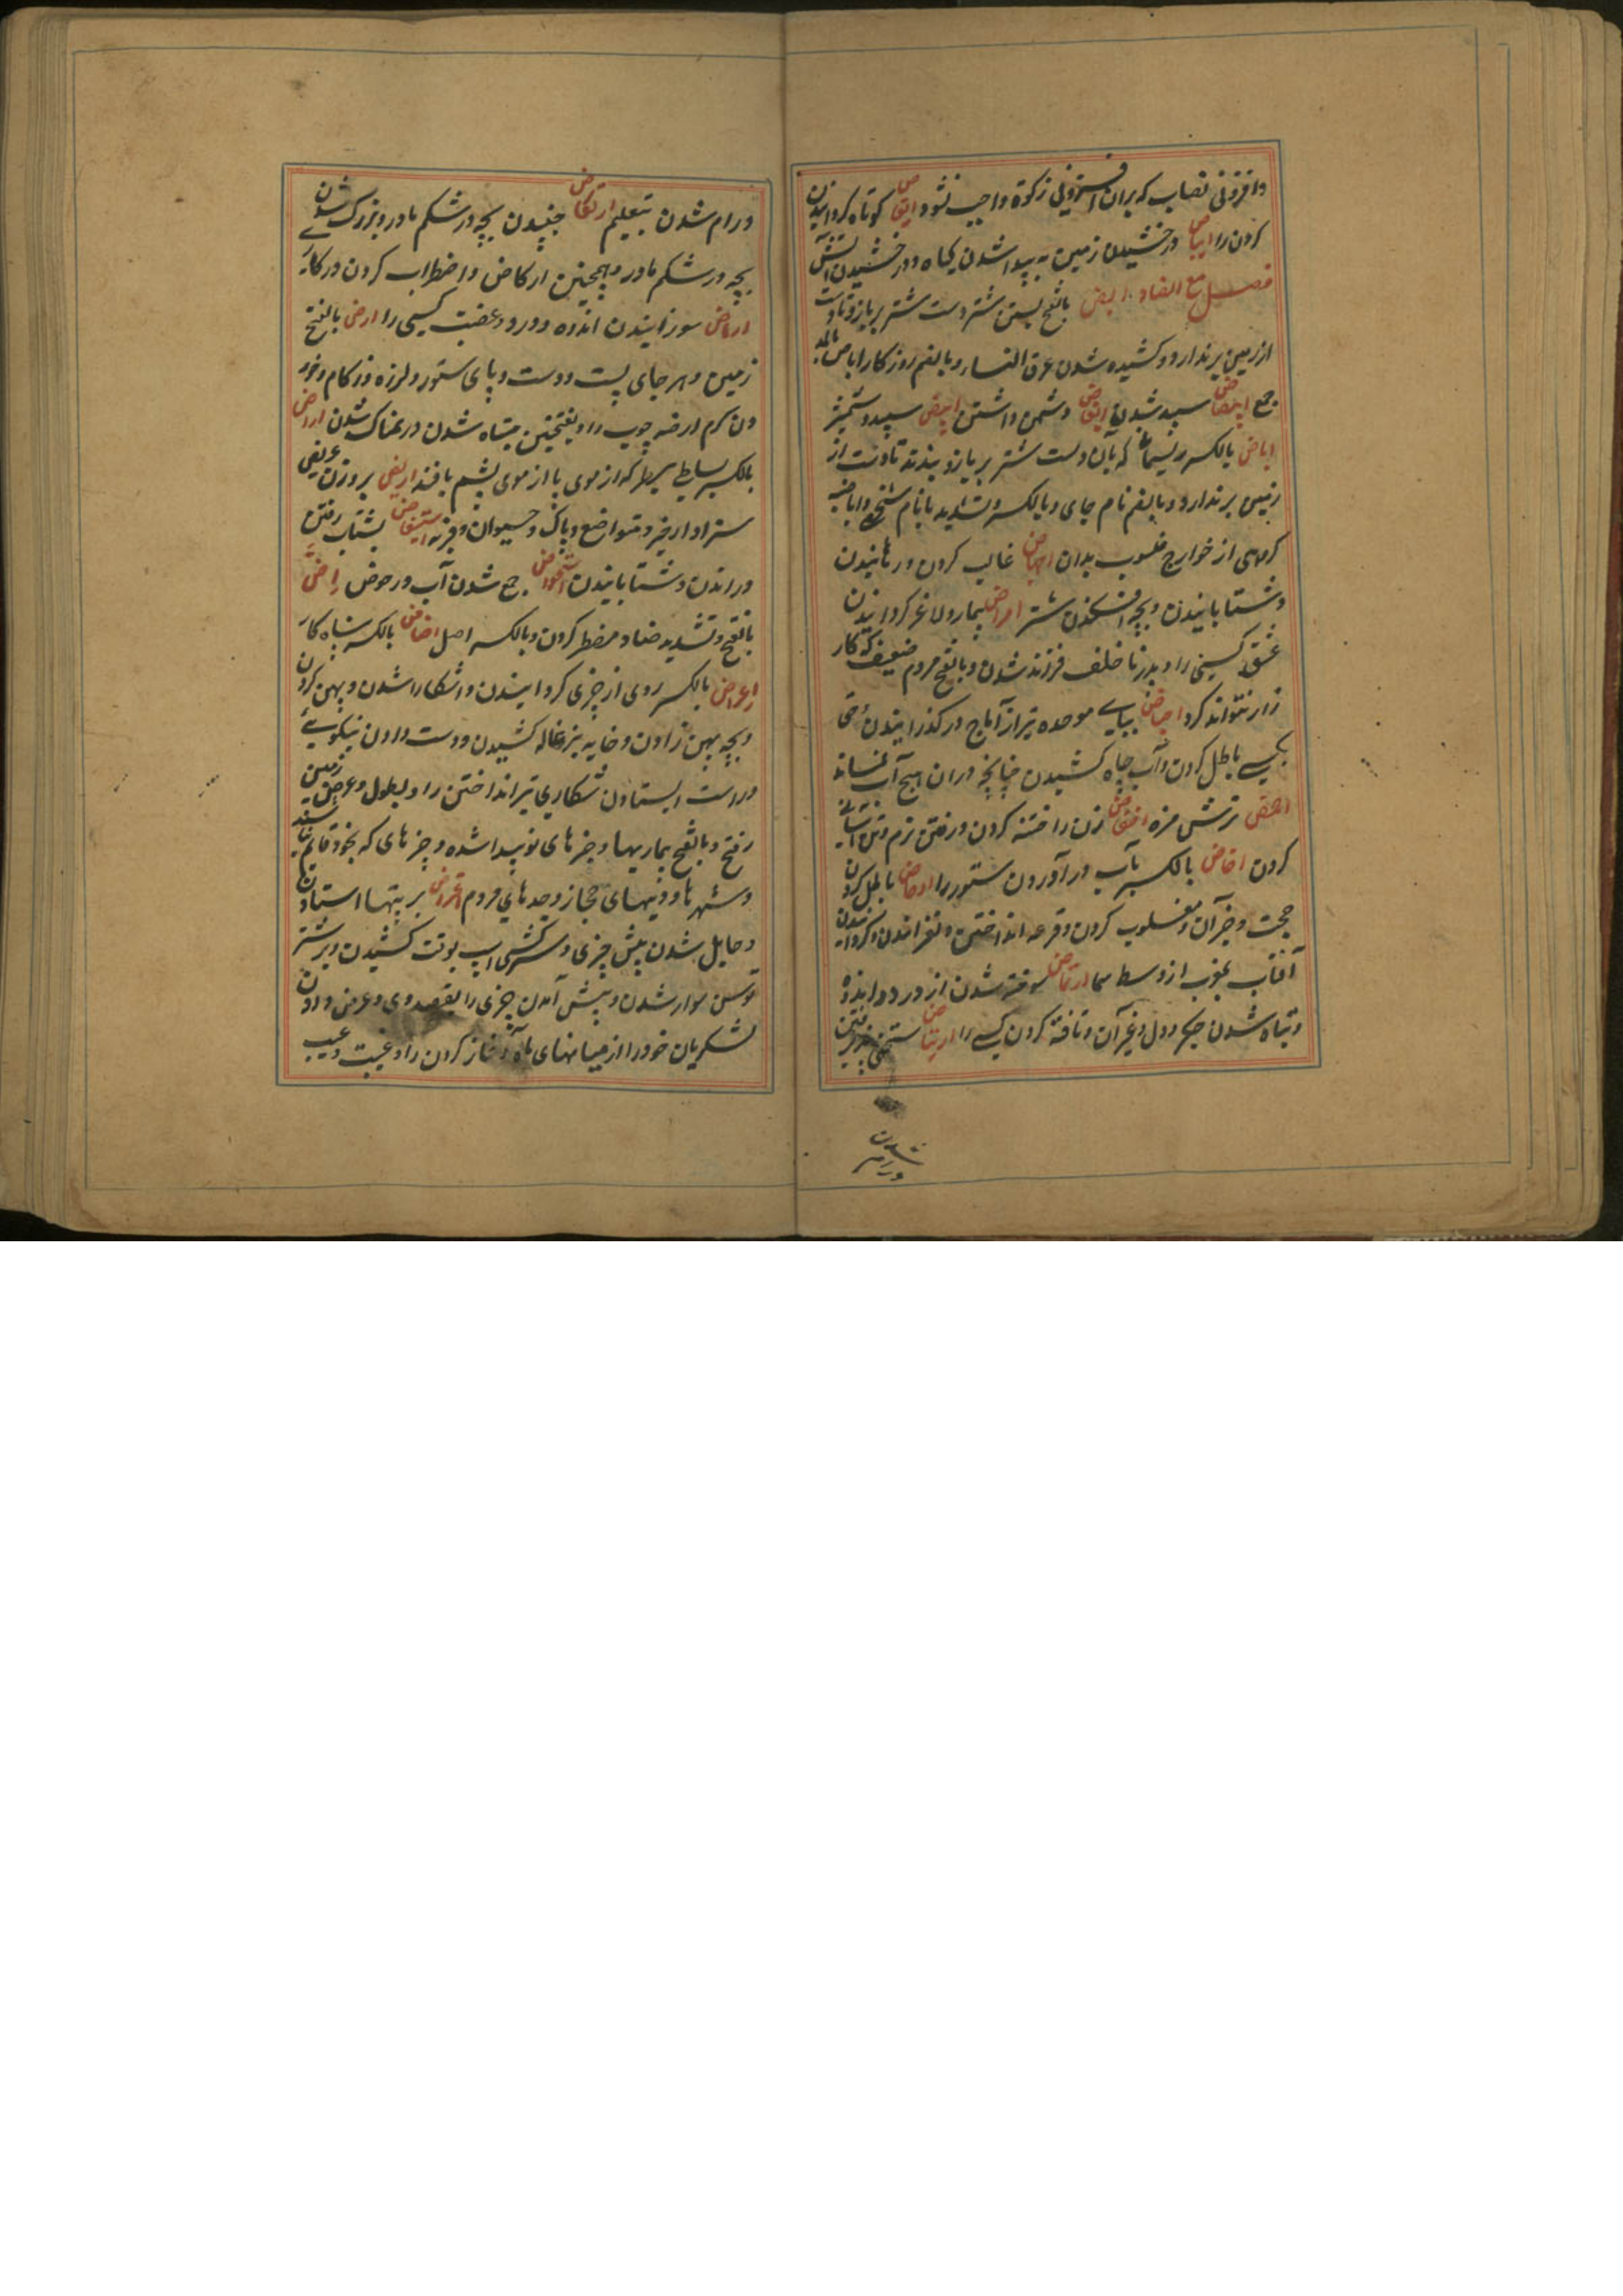 وافزونی نصاب که بران افزونی زکوة واجب نشود ایقاص کوتاه کردانیدن
کردن را ایباص درخشیدن زمین به پیدا شدن کیاه ودرخشیدن آتش
فصل مع الضاد ابض بالفتح بستن شتر دست شتر بر بازو تا دست
از زمین بردارد وکشیده شدن عرق النسا وبالضم روزکار اباض بالمد
جمع ابیضاض سپید شدن ابغاض دشمن داشتن ابیض سپید وشمشیر
اباض بالکسر ریسمان که بان دست شتر بر بازو بندند تا دست از
زمین بردارد وبالضم نام جای وبالکسر وتشدید با نام شخصی واباضیه
کروهی از خوارج منسوب بدان اجهاض غالب کردن ورهانیدن
وشتابانیدن وبچه افکندن شتر امراض بیمار ولاغر کردانیدن
عشق کسی را وپدر ناخلف فرزند شدن وبالفتح مردم ضعیف که کار
زار نتواند کرد احباض ببای موحده تیر از آماج درکذرانیدن وحق
کسی باطل کردن وآب چاه کشیدن چنانچه دران هیچ آب نماند
احمض ترش مزه اخفاض زن را ختنه کردن ورفتن نرم وتن آسانی
کردن اخاض بالکسر بآب درآوردن ستور را ادحاض باطل کردن
حجت وجز آن ومغلوب کردن وقرعه انداختن ولغزاندن وکردانیدن
آفتاب بمغرب از وسط سما ارتماض سوخته شدن از درد واندوه
وتباه شدن جکر ودل وغیر آن وتافته کردن کسی را ارتیاض
شدن
ورام
ورام شدن بتعلیم ارتکاض جنبیدن بچه در شکم مادر وبزرک شدن
بچه در شکم مادر وهمچنین ارکاض واضطراب کردن در کار
ارماض سوزانیدن اندوه ودرد وغضب کسی را ارض بالفتح
زمین وهر جای پست ودست وپای ستور ولرزه وزکام وخور
دن کرم ارضه چوب را وبفتحتین تباه شدن ونمناک شدن اراض
بالکسر بساطی سطبر که از موی یا از موی پشم بافند اریض بر وزن عریض
سزاوار خیر ومتواضع وپاک وحیوان وفربه استیفاض بشتاب رفتن
وراندن وشتابانیدن جمع شدن آب در حوض اض
بالفتح وتشدید ضاد مضطر کردن وبالکسر اصل اضاض بالکسر پناه کاه
اعراض بالکسر روی از چیزی کردانیدن واشکارا شدن وپهن کردن
وبچه پهن زادن وخایه بزغاله کشیدن ودست دادن نیکویی
وراست ایستادن شکاری تیر انداختن را وبطول وعرض زمین
رفتن وبالفتح بیماریها وچیزهای نو پیدا شده وچیزهای که بخود قایم نباشند
وشهرها ودیههای حجاز وجدهای مردم اعتراض بر پیتها استادن
وحایل شدن پیش چیزی وسرکشی اسپ بوقت کشیدن وبر شتر
توسن سوار شدن وپیش آمدن چیزی را بقصد وی وعرض دادن
لشکریان خود را از میانهای ماه آغاز کردن را وغیبت وعیب